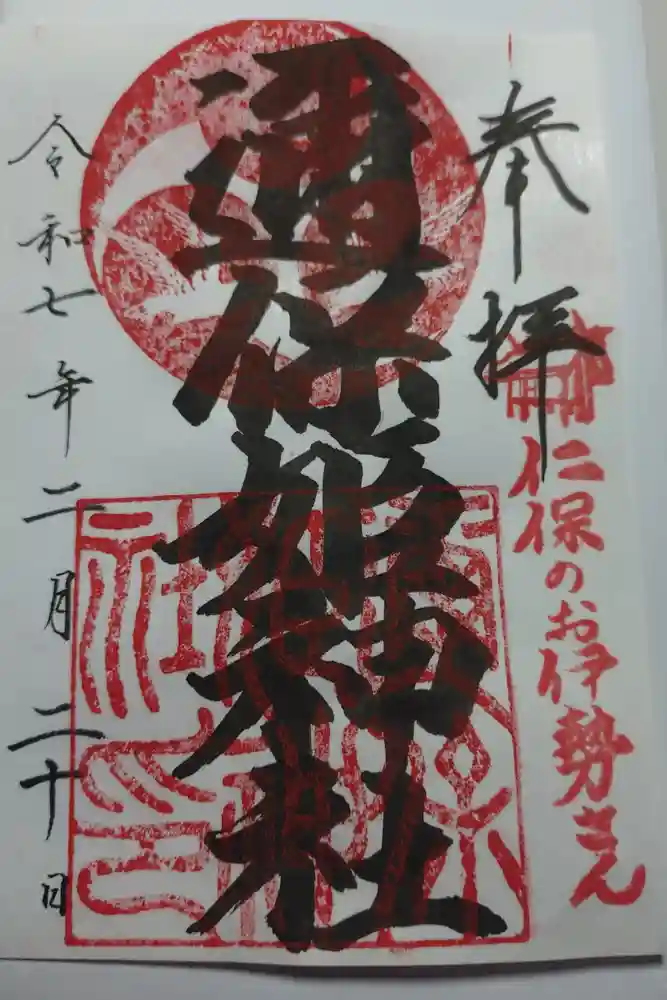 奉拝
仁保のお伊勢さん
邇保姫神社
令和七年二月二十日